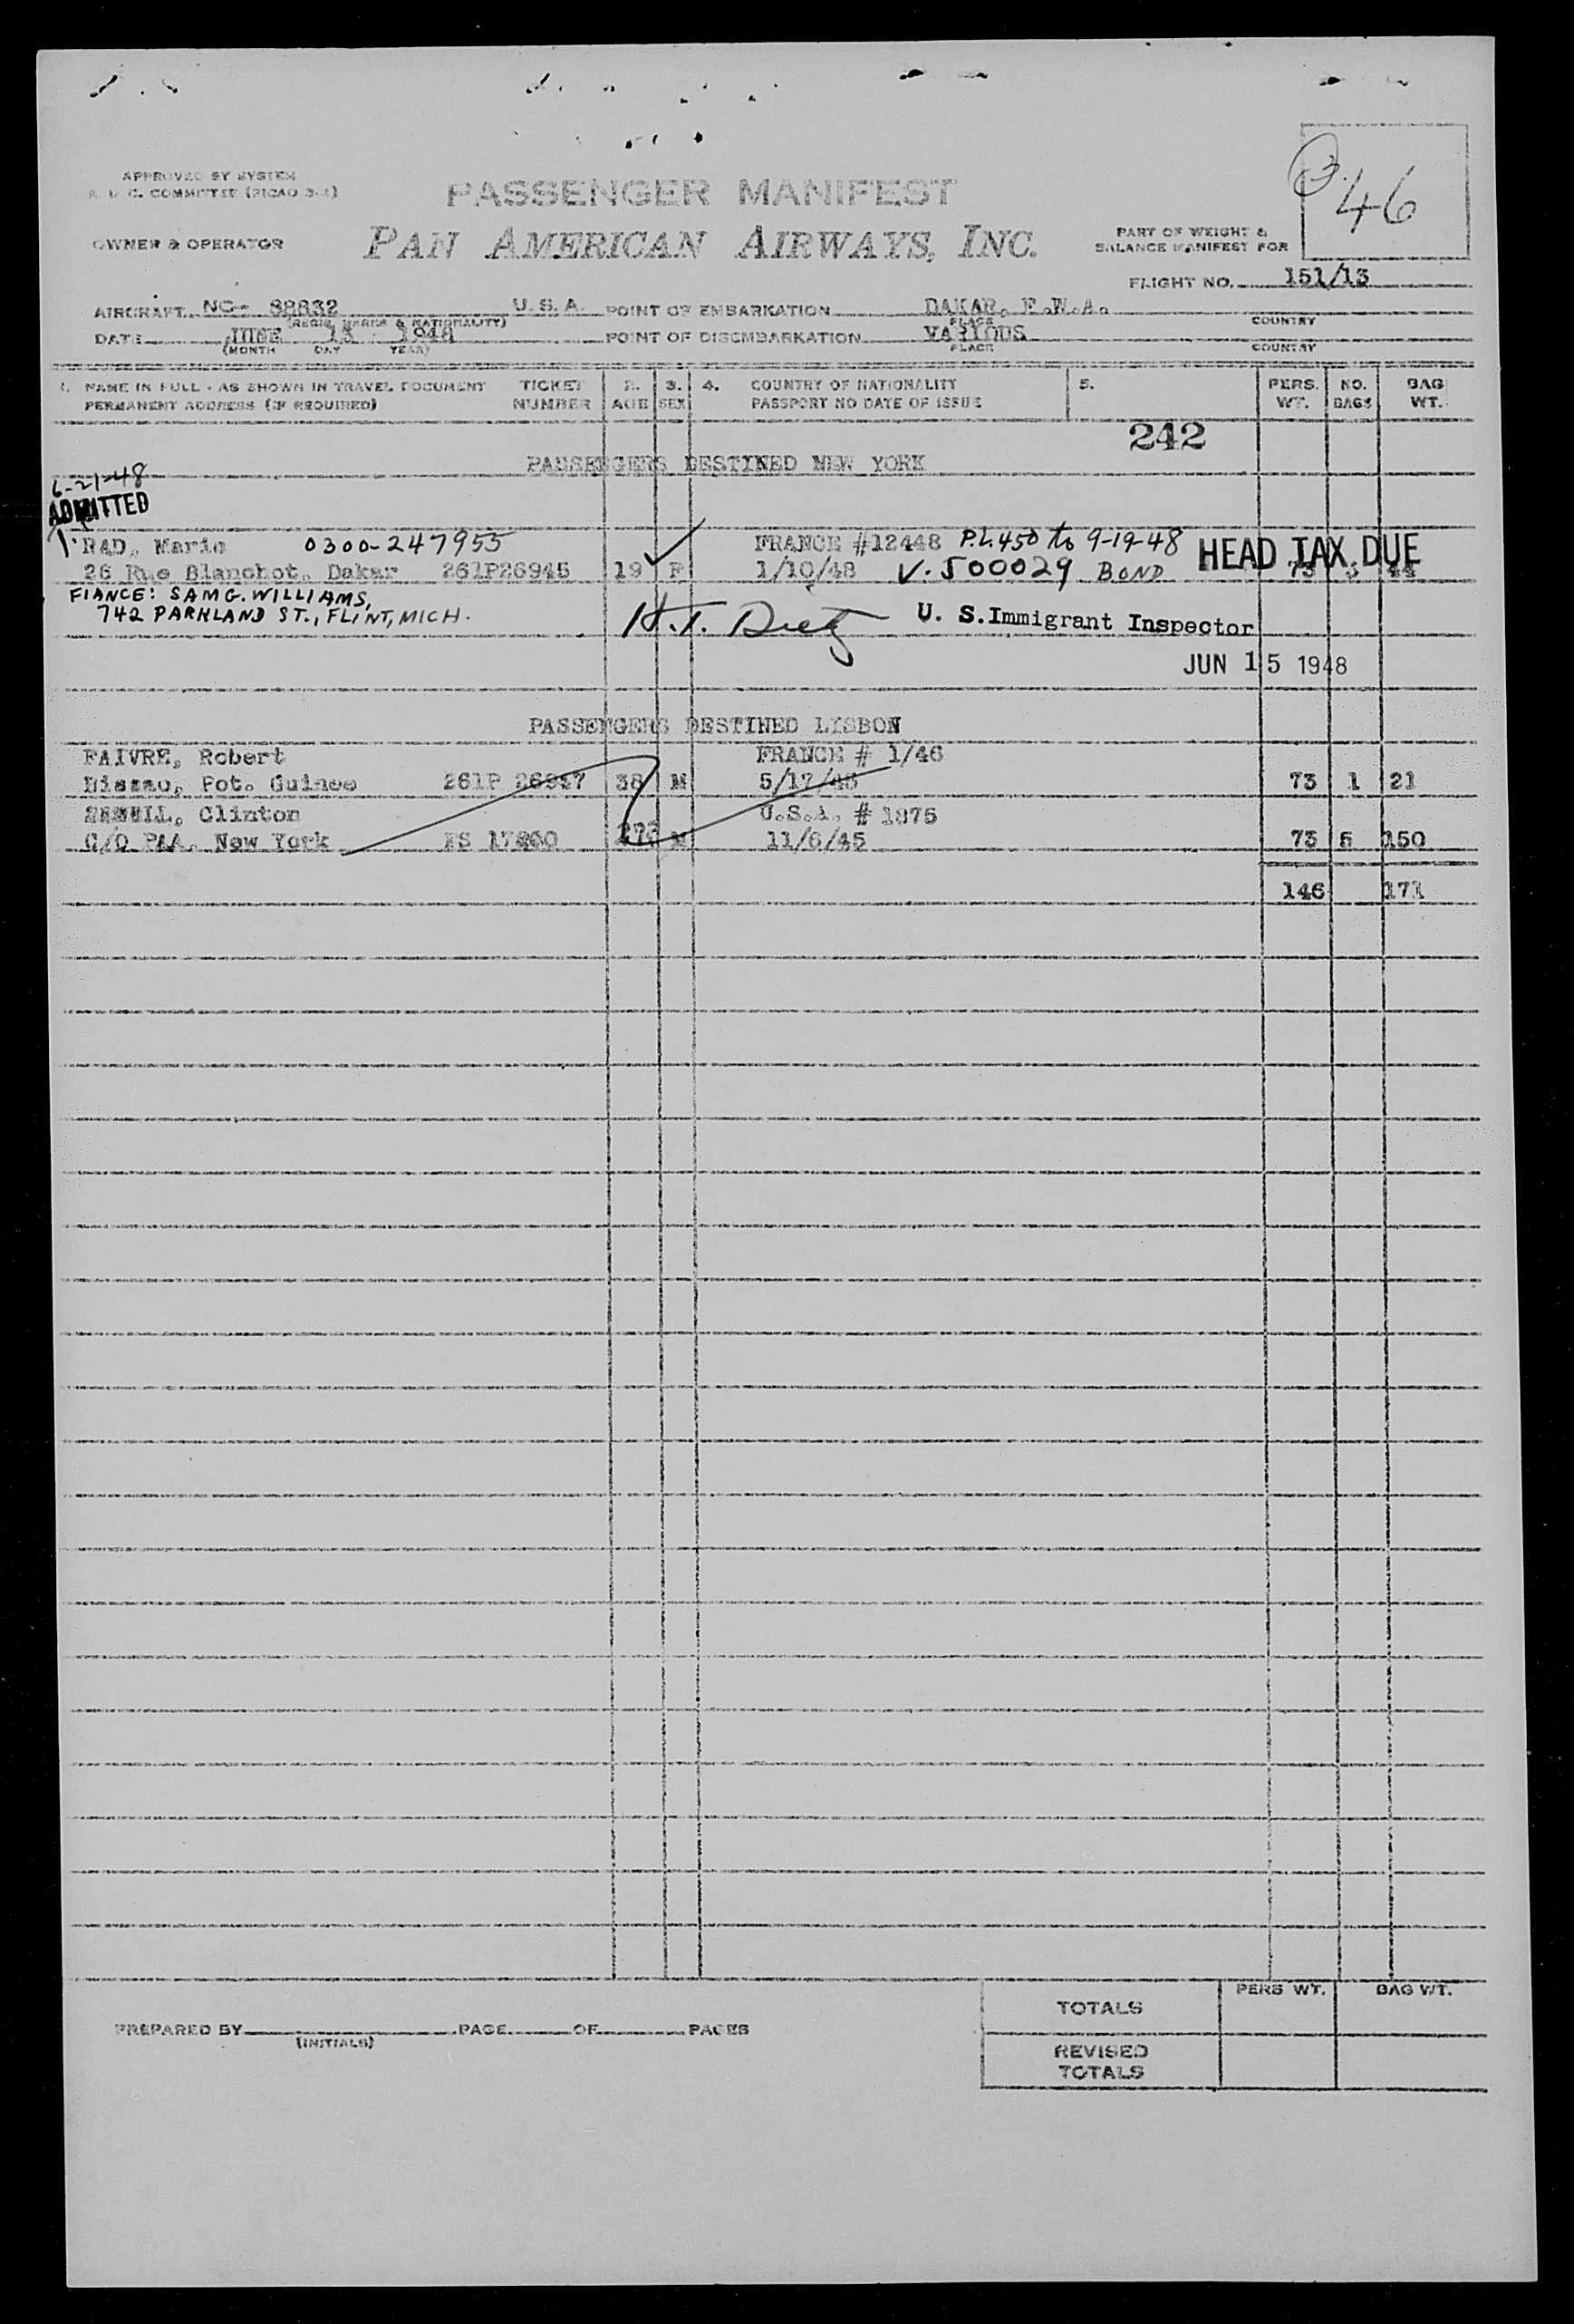 APPROVED BY SYSTEM
COMMITTEE (PICAO 3-4)
PASSENGER MANIFEST
3.
46
OWNER & OPERATOR
PAN AMERICAN AIRWAYS, INC.
PART OF WEIGHT &
BALANCE MANIFEST FOR
FLIGHT NO. 151/13
AIRCRAFT NC- 88832 U.S.A. POINT OF EMBARKATION DAKAR, F.W.A.
(REGIS. MARKS & NATIONALITY) PLACE COUNTRY
DATE JUNE 13 1948 POINT OF DISEMBARKATION VARIOUS
(MONTH DAY YEAR) PLACE COUNTRY
1. NAME IN FULL - AS SHOWN IN TRAVEL DOCUMENT TICKET 2. 3. 4. COUNTRY OF NATIONALITY 5. PERS. NO. BAG
PERMANENT ADDRESS (IF REQUIRED) NUMBER AGE SEX PASSPORT NO DATE OF ISSUE WT. BAGS WT.
242
PASSENGERS DESTINED NEW YORK
6-21-48
ADMITTED
1. RAD, Marie 0300-247955 FRANCE #12448 P.L. 450 to 9-19-48 HEAD TAX DUE
26 Rue Blanchot, Dakar 261P26945 19 F 1/10/48 V. 500029 BOND 73 3 44
FIANCE: SAM G. WILLIAMS,
742 PARKLAND ST., FLINT, MICH.
H.T. Dietz U. S. Immigrant Inspector
JUN 15 1948
PASSENGERS DESTINED LISBON
FAIVRE, Robert FRANCE # 1/46
Bissao, Pot. Guinee 261P 26947 38 M 5/17/48
73 1 21
Clinton U.S.A. # 1875
C/O PAA, New York FS 17860 M 11/6/45 73 5 150
146 171
TOTALS PERS WT. BAG WT.
PREPARED BY PAGE OF PAGES
(INITIALS)
REVISED
TOTALS